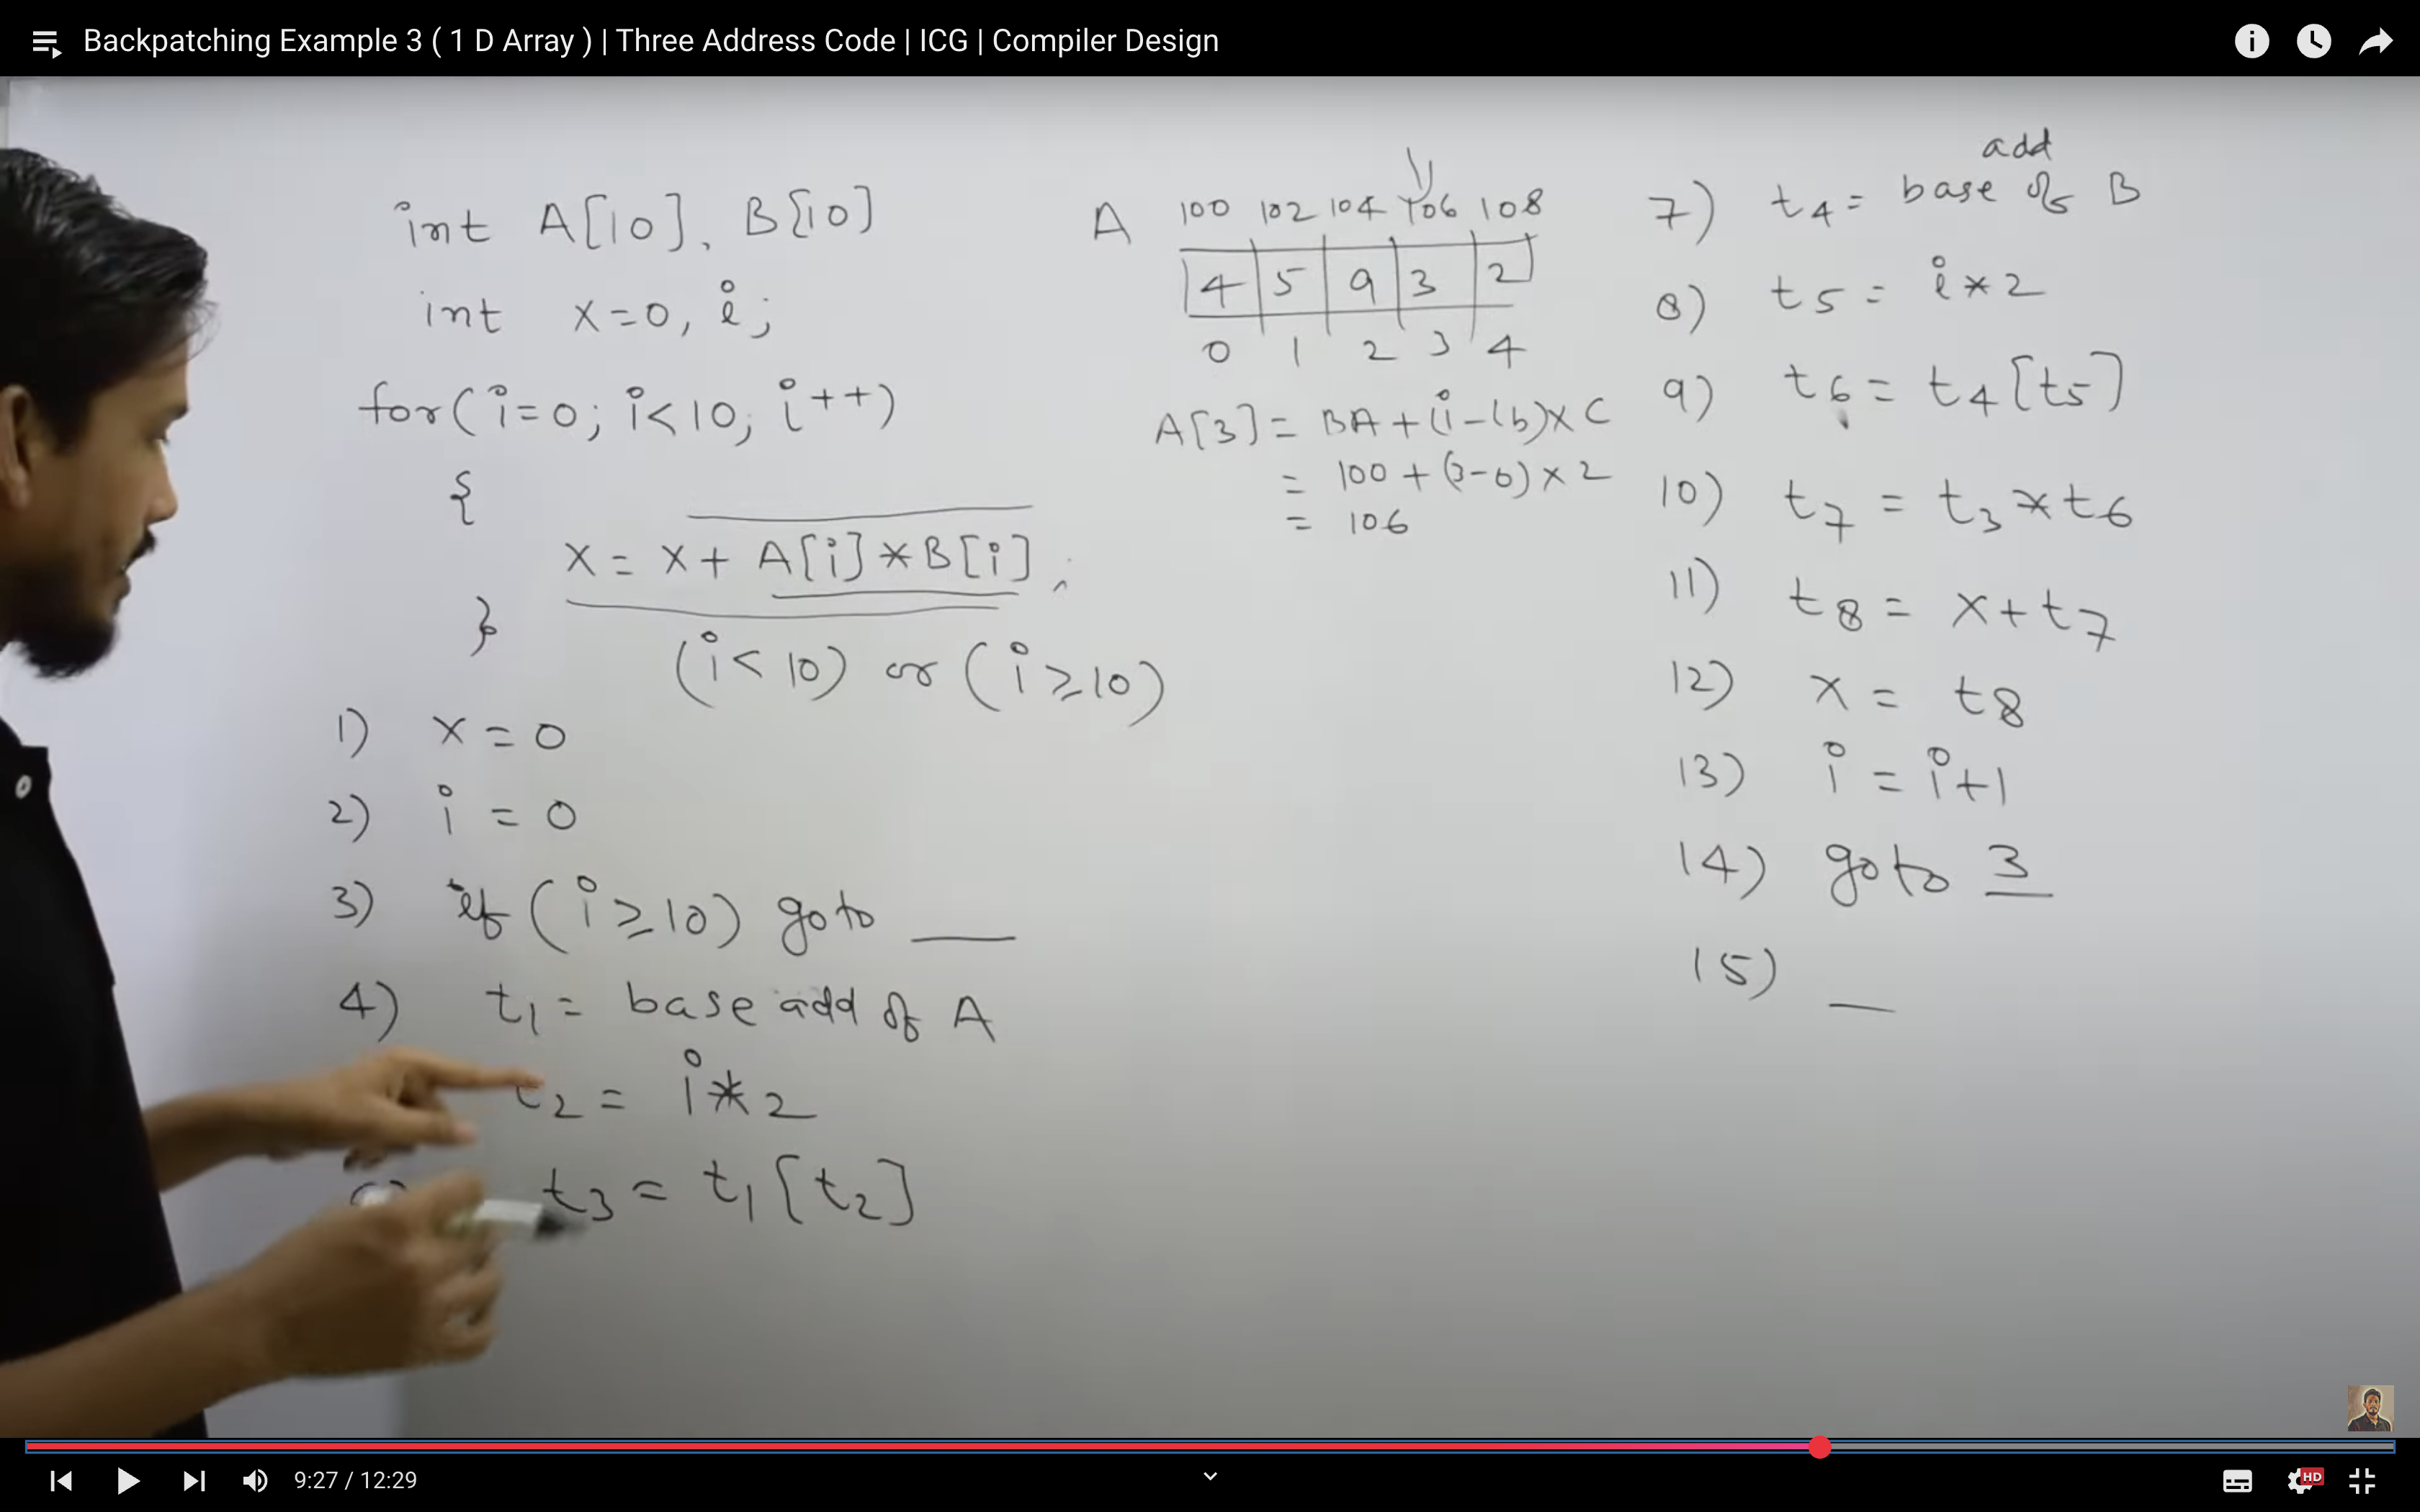 Backpatching Example 3 ( 1 D Array ) | Three Address Code | ICG | Compiler Design
int A[10], B[10]
int x=0, i;
for(i=0; i<10; i++)
{
x = x + A[i] * B[i];
}
(i<10) or (i≥10)
1) x = 0
2) i = 0
3) if (i≥10) goto ___
4) t1 = base add of A
t2 = i*2
t3 = t1[t2]
A 100 102 104 106 108
4 5 9 3 2
0 1 2 3 4
A[3] = BA+(i-lb)×C
= 100+(3-0)×2
= 106
add
7) t4 = base of B
8) t5 = i*2
9) t6 = t4[t5]
10) t7 = t3*t6
11) t8 = x+t7
12) x = t8
13) i = i+1
14) goto 3
15) _
9:27 / 12:29
HD